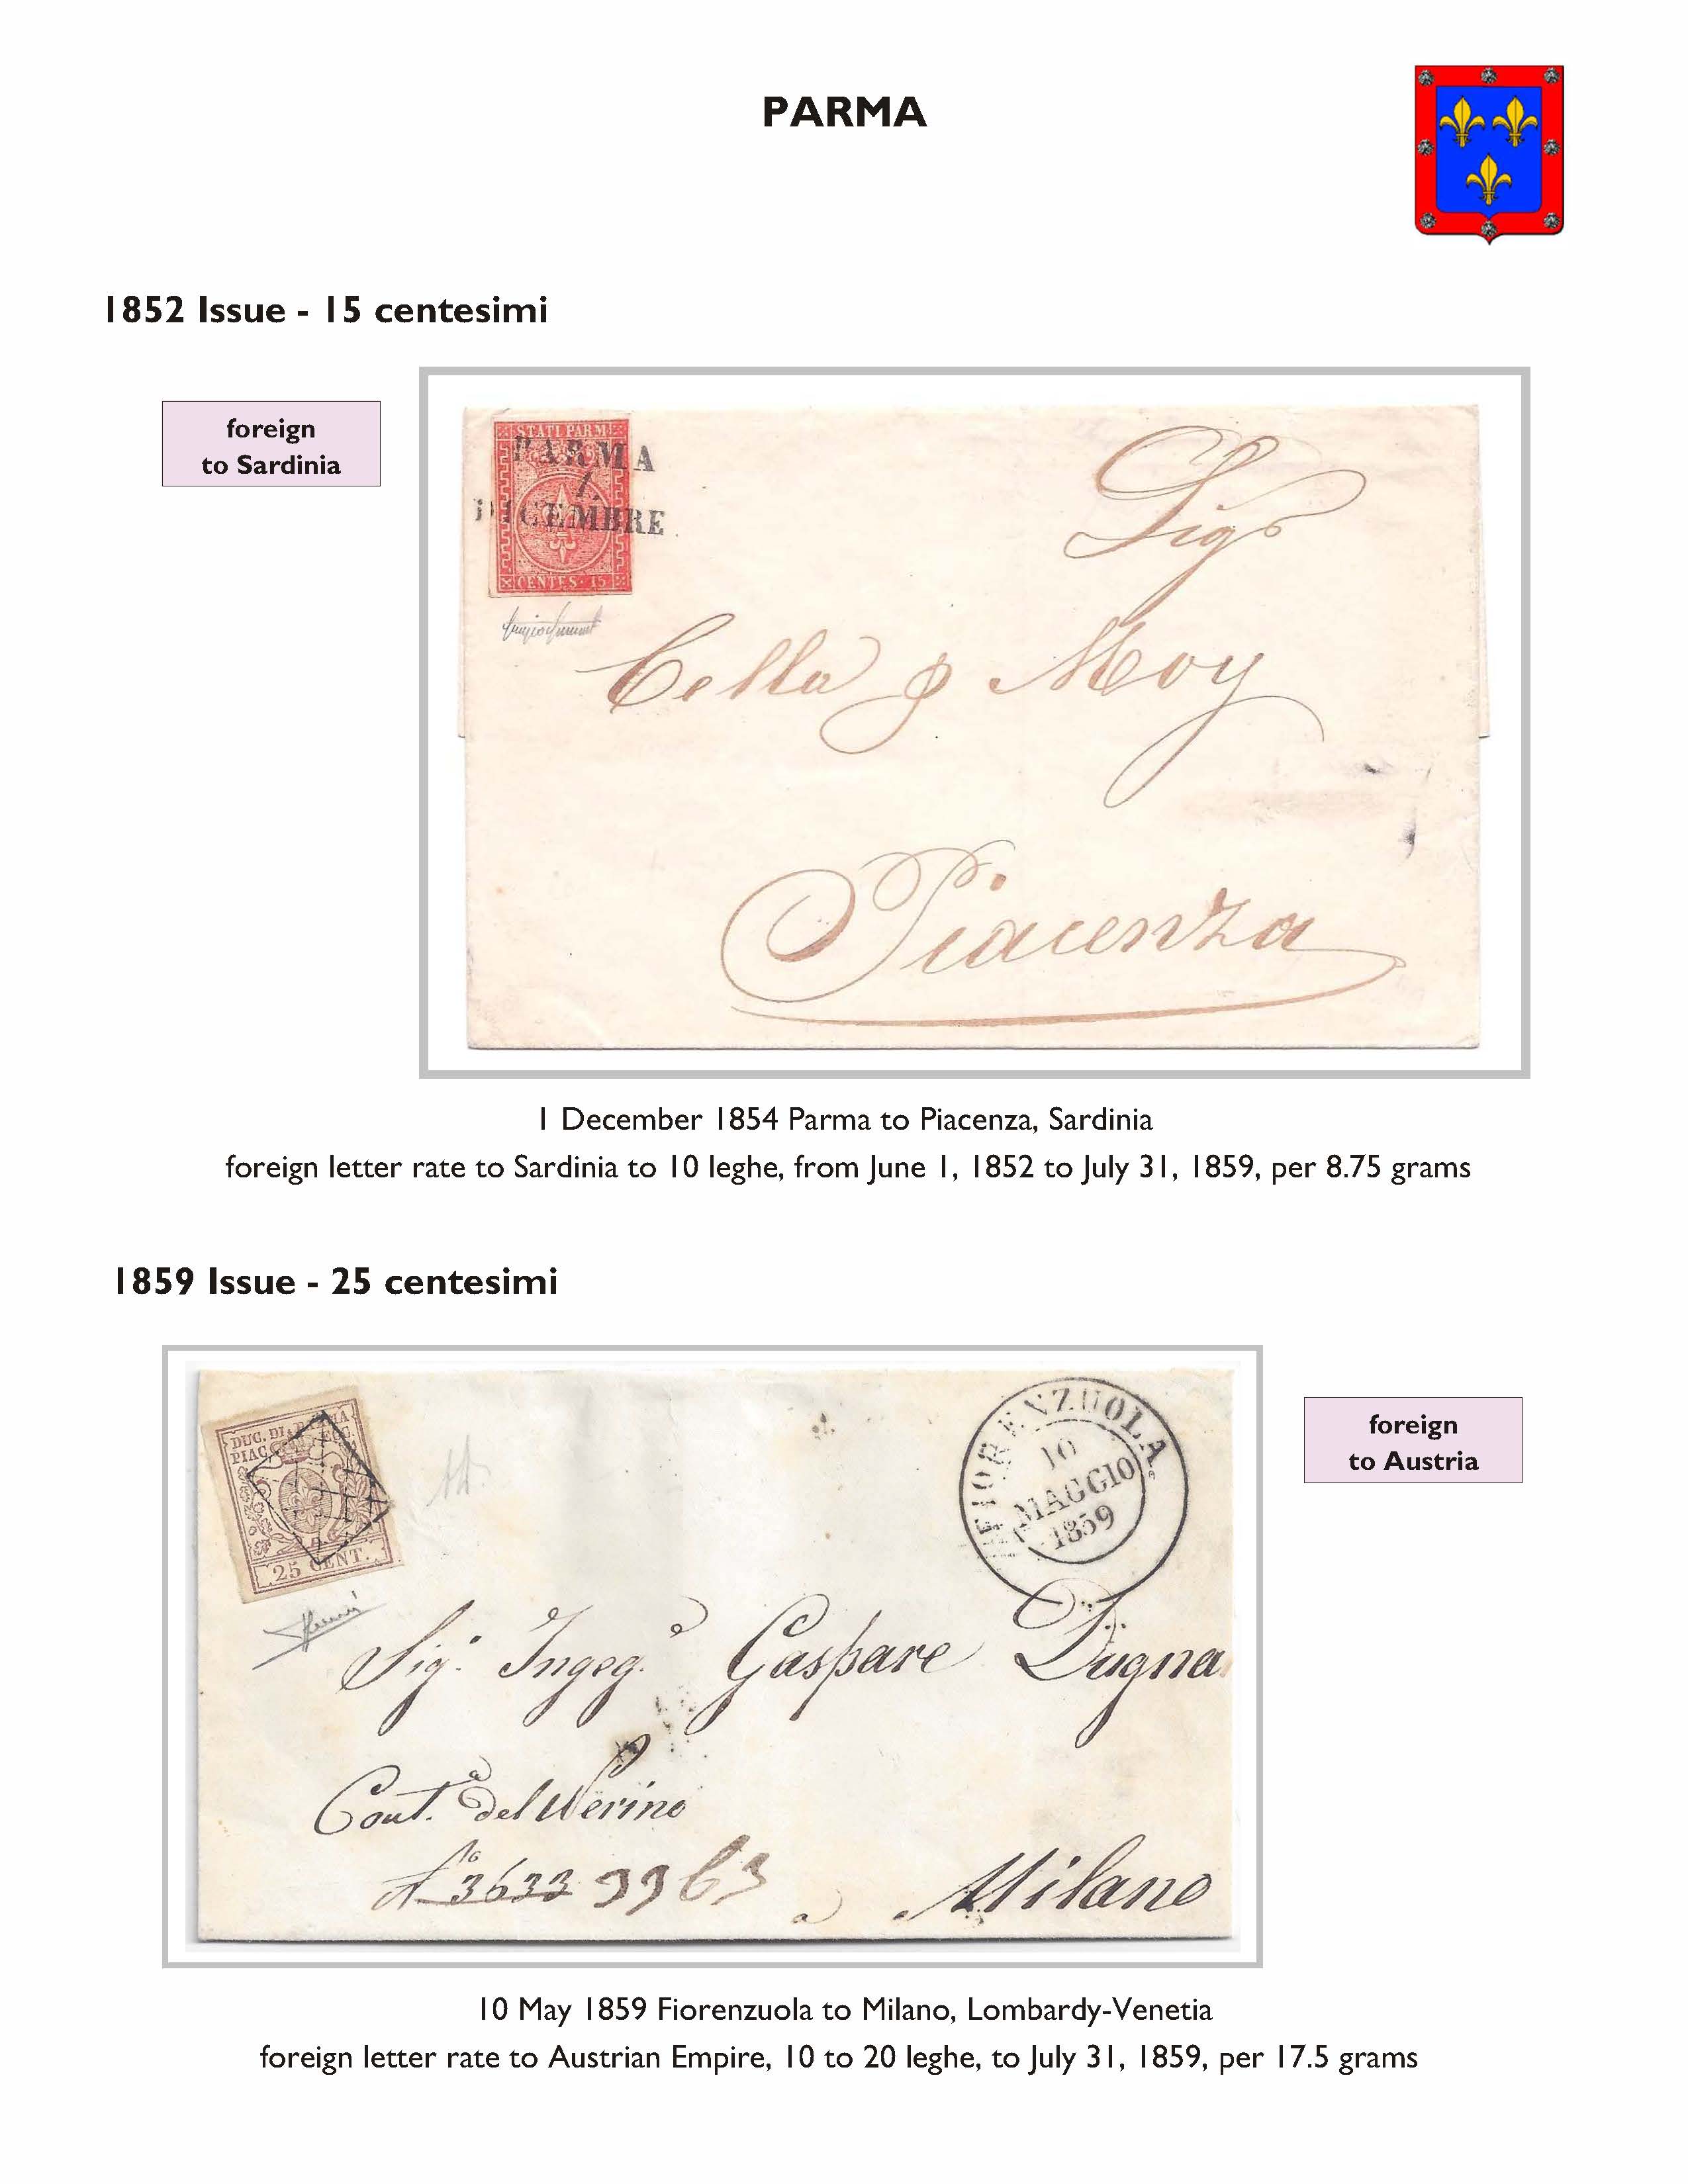 PARMA
1852 Issue - 15 centesimi
foreign
to Sardinia
STATI PARM:
PARMA
1.
DICEMBRE
CENTES. 15
Sigr
Cella & Moy
Piacenza
1 December 1854 Parma to Piacenza, Sardinia
foreign letter rate to Sardinia to 10 leghe, from June 1, 1852 to July 31, 1859, per 8.75 grams
1859 Issue - 25 centesimi
foreign
to Austria
DUC. DI PARMA
PIAC. ECC.
25 CENT.
FIORENZUOLA
10
MAGGIO
1859
Sig. Ingeg.e Gaspare Dugna
Cont.a del
No 3633 3963
a Milano
10 May 1859 Fiorenzuola to Milano, Lombardy-Venetia
foreign letter rate to Austrian Empire, 10 to 20 leghe, to July 31, 1859, per 17.5 grams